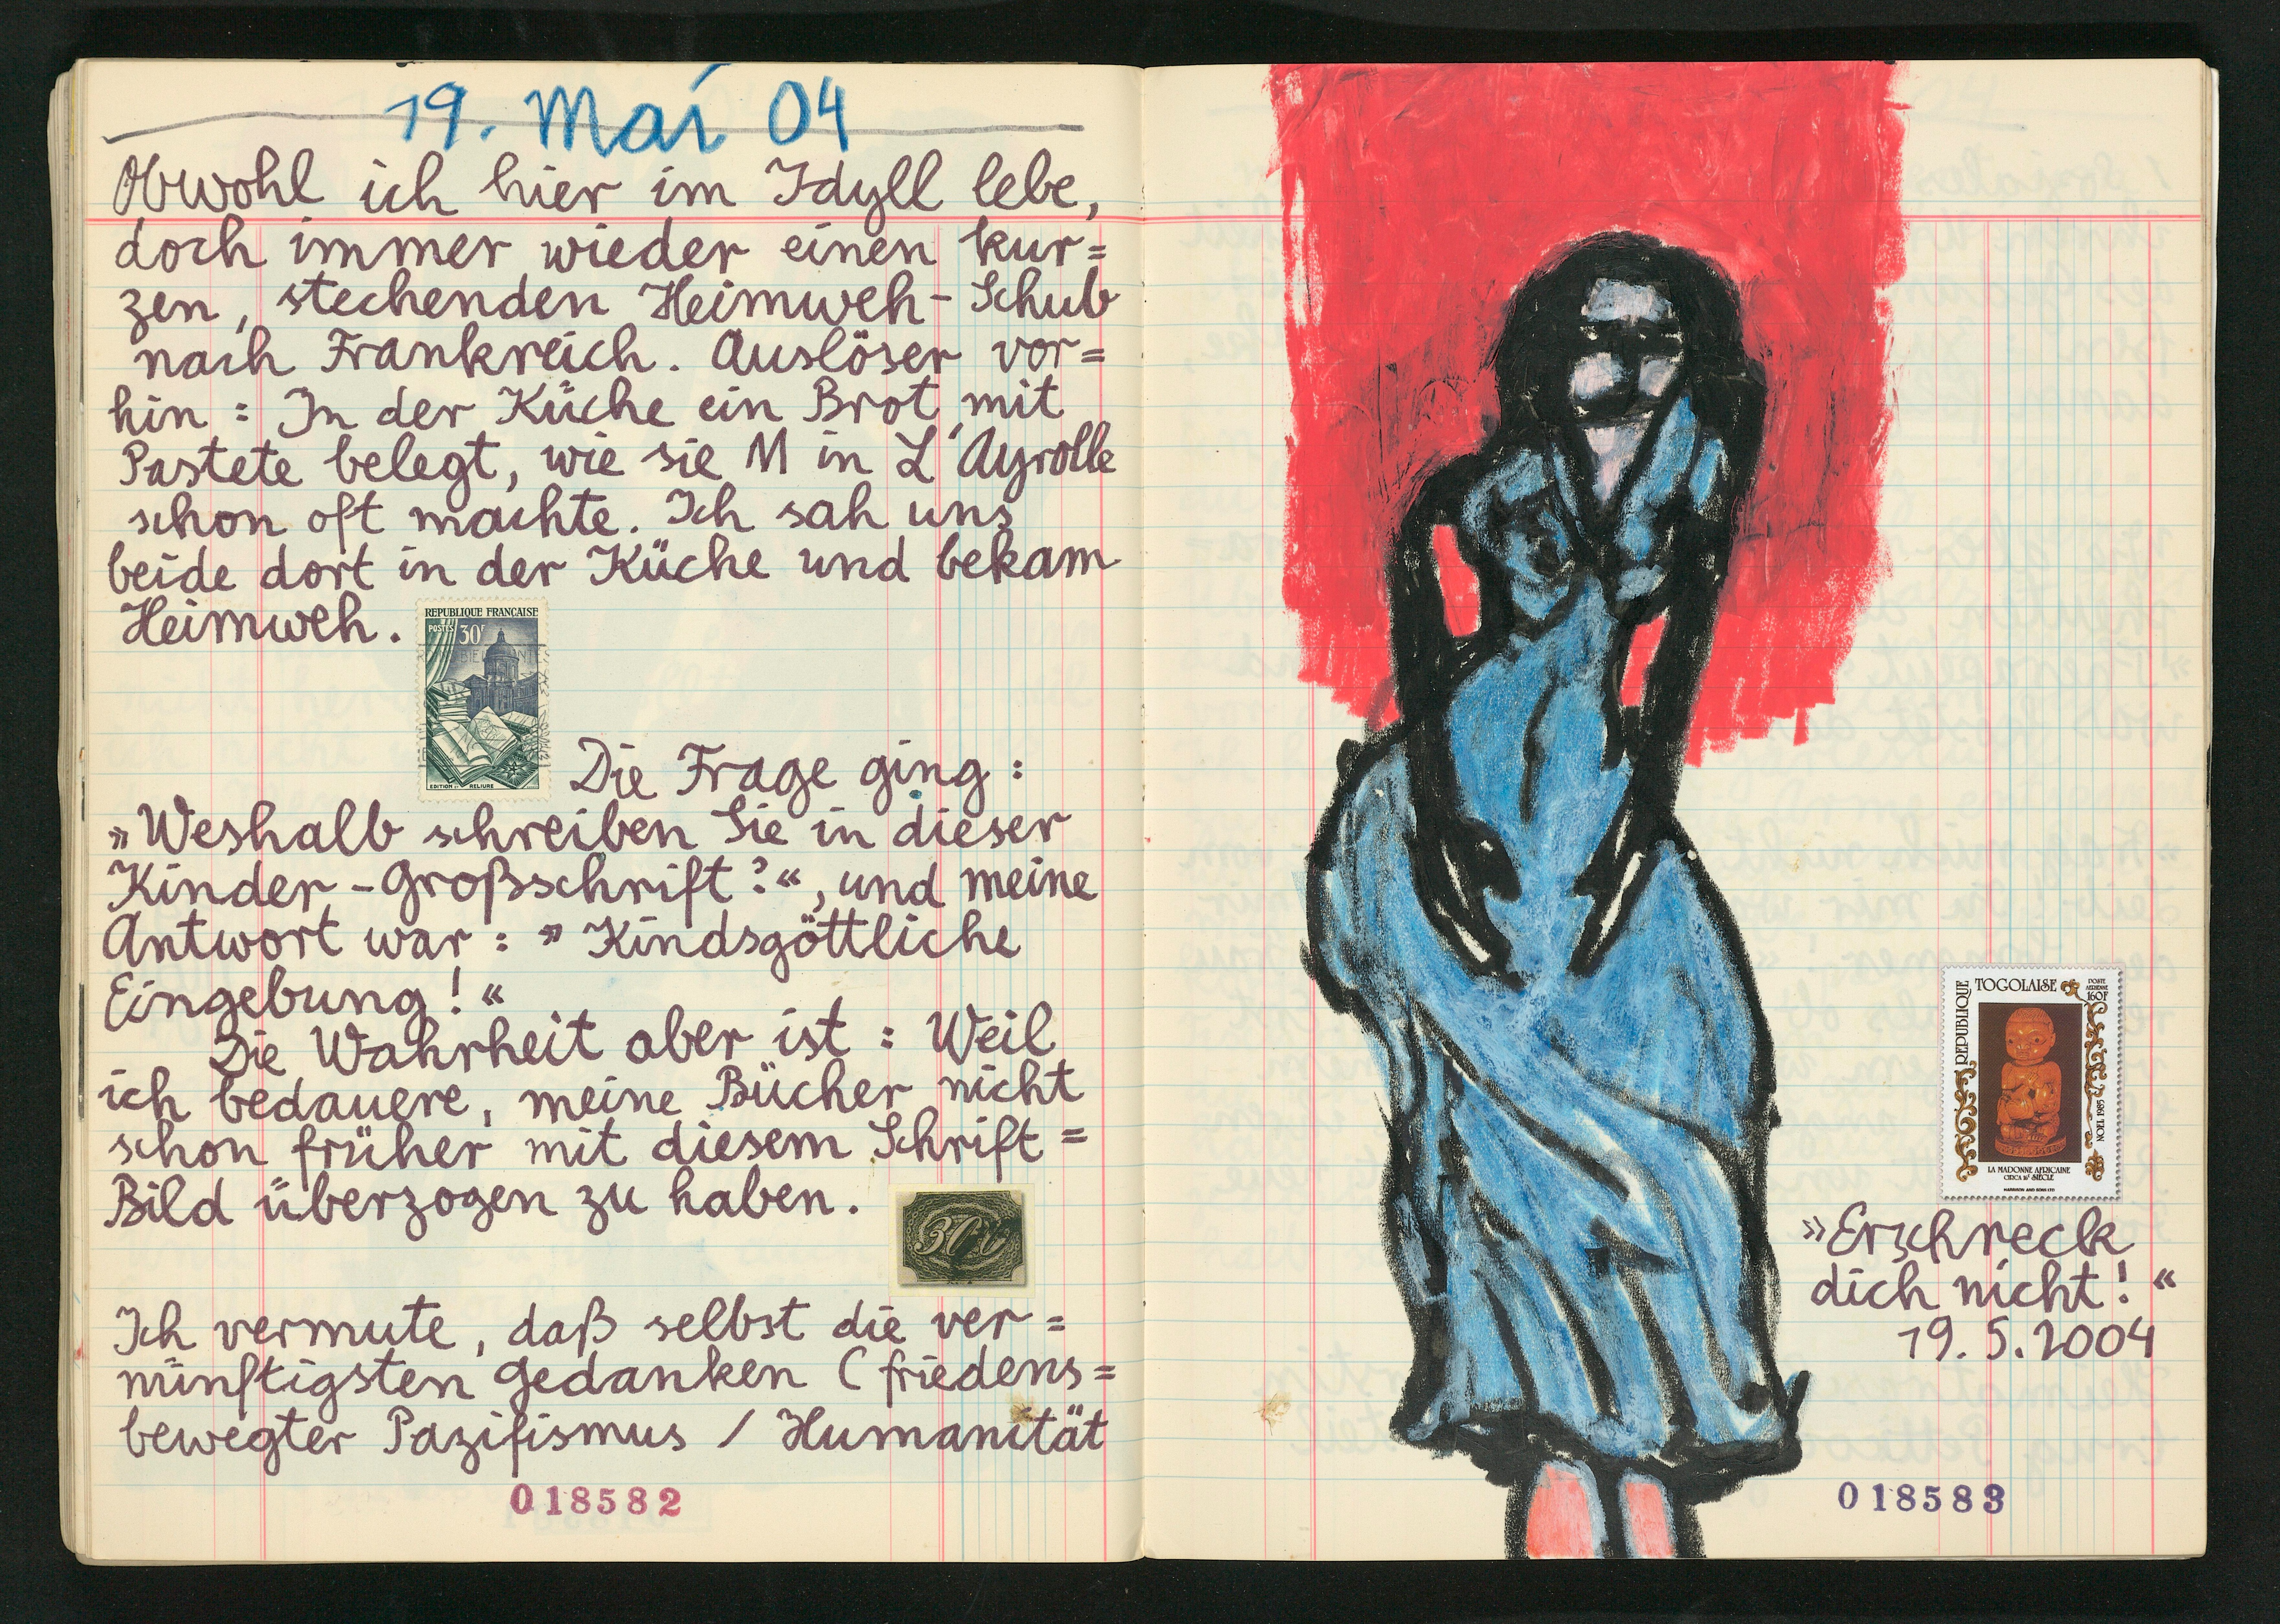 19. Mai 04
Obwohl ich hier im Idyll lebe,
doch immer wieder einen kur=
zen, stechenden Heimweh-Schub
nach Frankreich. Auslöser vor=
hin: In der Küche ein Brot mit
Pastete belegt, wie sie M in L'Ayrolle
schon oft machte. Ich sah uns
beide dort in der Küche und bekam
Heimweh.
REPUBLIQUE FRANÇAISE
POSTES 30F
EDITION ET RELIURE
Die Frage ging:
»Weshalb schreiben Sie in dieser
Kinder-Großschrift?«, und meine
Antwort war: »Kindsgöttliche
Eingebung!«
Die Wahrheit aber ist: Weil
ich bedauere, meine Bücher nicht
schon früher mit diesem Schrift=
Bild überzogen zu haben.
30
Ich vermute, daß selbst die ver=
nünftigsten Gedanken (friedens=
bewegter Pazifismus / Humanität
018582
REPUBLIQUE TOGOLAISE
POSTE
AERIENNE
160F
NOEL 1985
LA MADONNE AFRICAINE
CIRCA 16e SIECLE
HARRISON AND SONS LTD
»Erschreck
dich nicht!«
19.5.2004
018583